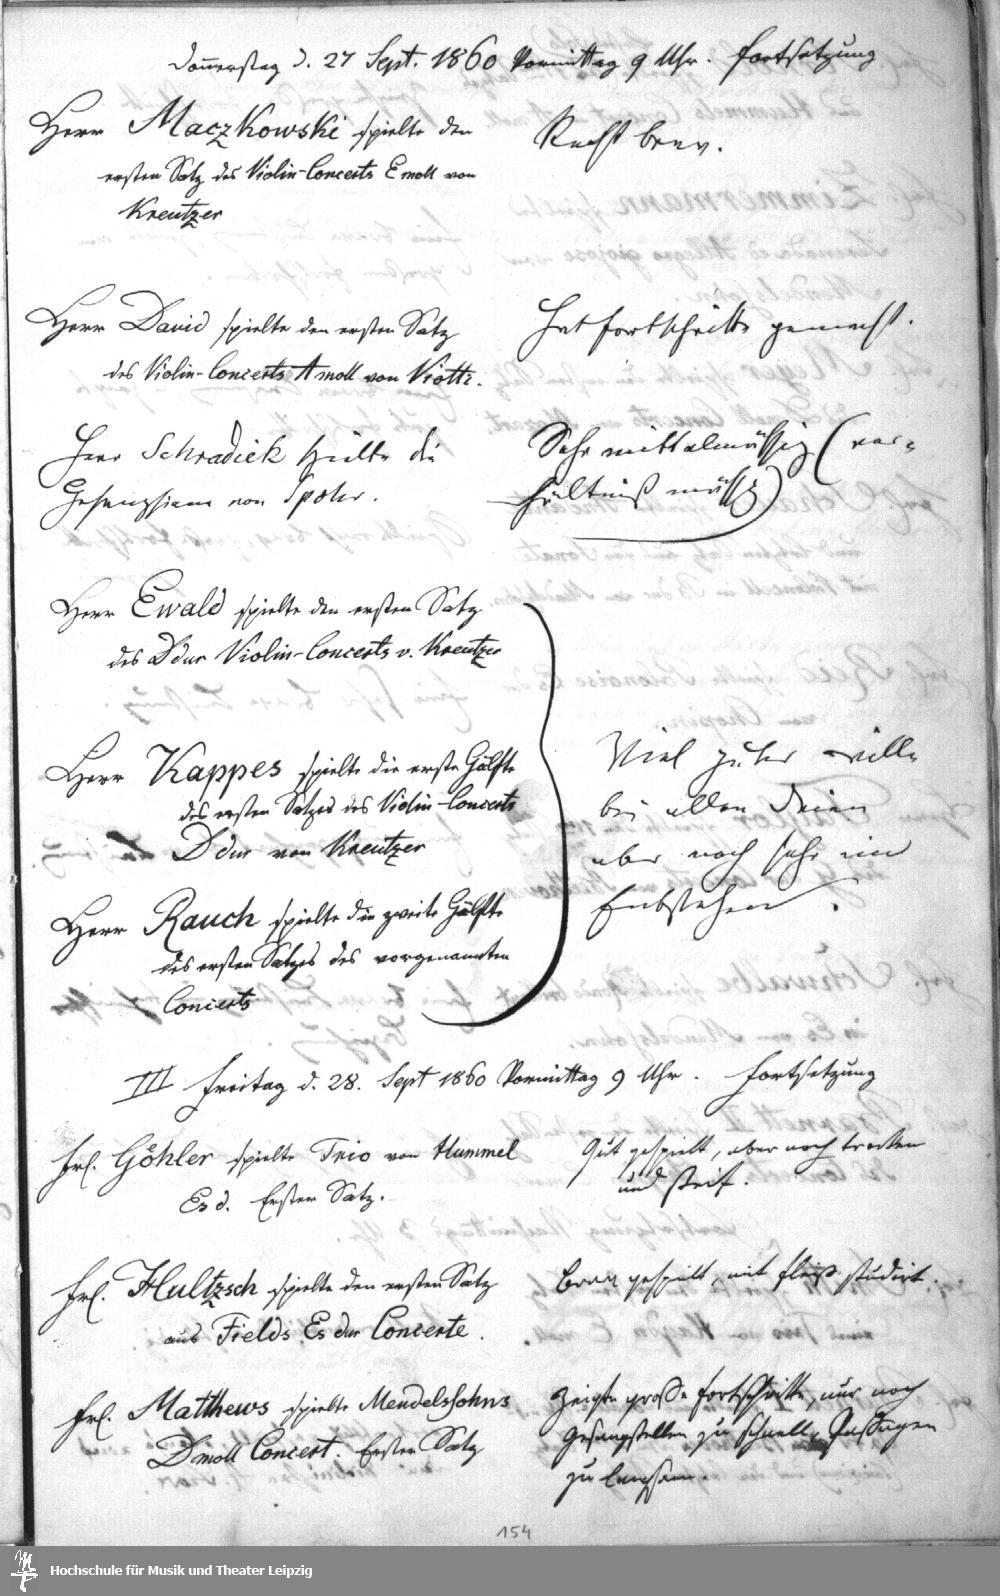 Donnerstag d. 27 Sept. 1860 Vormittag 9 Uhr. Fortsetzung
Herr Maczkowski spielte den
ersten Satz des Violin-Concerts E moll von
Kreutzer
Recht brav.
Herr David spielte den ersten Satz
des Violin-Concerts A moll von Viotti.
Hat Fortschritte gemacht.
Herr Schradieck spielte die
Gesangsscene von Spohr.
Sehr mittelmässig (ver-
hältniß mässig)
Herr Ewald spielte den ersten Satz
des D dur Violin-Concerts v. Kreutzer
Herr Kappes spielte die erste Hälfte
des ersten Satzes des Violin-Concerts
D dur von Kreutzer
Herr Rauch spielte die zweite Hälfte
des ersten Satzes des vorgenannten
Concerts
Viel guter Wille
bei allen Dreien
aber noch sehr im
Entstehen.
III Freitag d. 28. Sept 1860 Vormittag 9 Uhr. Fortsetzung
Frl. Göhler spielte Trio von Hummel
Es d. Erster Satz.
Gut gespielt, aber noch trocken
und steif.
Frl. Hultzsch spielte den ersten Satz
aus Fields Es dur Concerte.
Brav gespielt, mit Fleiß studirt.
Frl. Matthews spielte Mendelssohns
D moll Concert. Erster Satz
Zeigte große Fortschritte, nur noch
Gesangstellen zu schnell, Passagen
zu langsam.
154
Hochschule für Musik und Theater Leipzig